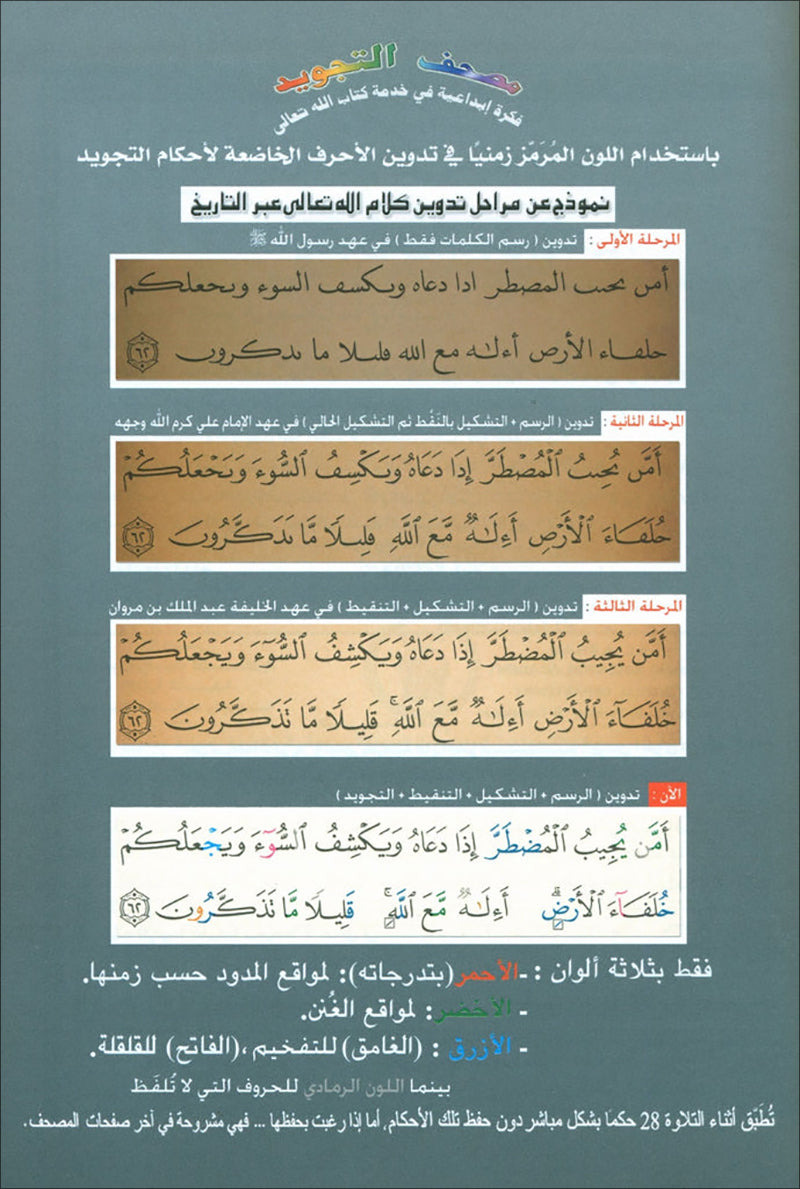 مصحف التجويد
فكرة إبداعية في خدمة كتاب الله تعالى
باستخدام اللون المُرَمّز زمنيًا في تدوين الأحرف الخاضعة لأحكام التجويد
نموذج عن مراحل تدوين كلام الله تعالى عبر التاريخ
المرحلة الأولى : تدوين ( رسم الكلمات فقط ) في عهد رسول الله ﷺ
أمں ىحىٮ المصطر ادا دعاه وىكسف السوء وىحعلكم
حلفاء الأرص أءلٰه مع الله ڡلىلا ما ىدكروں ٦٢
المرحلة الثانية : تدوين ( الرسم + التشكيل بالنَقْط ثم التشكيل الحالي ) في عهد الإمام علي كرم الله وجهه
أَمَّں ىُحِىٮُ ٱلْمُصْطَرَّ إِدَا دَعَاهُ وَىَكْسِفُ ٱلسُّوءَ وَىَحْعَلُكُمْ
حُلَفَاءَ ٱلْأَرْصِ أَءِلَٰهٌ مَّعَ ٱللَّهِ ڡَلِىلًا مَّا ىَدَكَّرُوںَ ٦٢
المرحلة الثالثة : تدوين ( الرسم + التشكيل + التنقيط ) في عهد الخليفة عبد الملك بن مروان
أَمَّن يُجِيبُ ٱلْمُضْطَرَّ إِذَا دَعَاهُ وَيَكْشِفُ ٱلسُّوٓءَ وَيَجْعَلُكُمْ
خُلَفَآءَ ٱلْأَرْضِ أَءِلَٰهٌ مَّعَ ٱللَّهِ ۚ قَلِيلًا مَّا تَذَكَّرُونَ ٦٢
الآن : تدوين ( الرسم + التشكيل + التنقيط + التجويد )
أَمَّن يُجِيبُ ٱلْمُضْطَرَّ إِذَا دَعَاهُ وَيَكْشِفُ ٱلسُّوٓءَ وَيَجْعَلُكُمْ
خُلَفَآءَ ٱلْأَرْضِ ۗ أَءِلَٰهٌ مَّعَ ٱللَّهِ ۚ قَلِيلًا مَّا تَذَكَّرُونَ ٦٢
فقط بثلاثة ألوان : -الأحمر(بتدرجاته): لمواقع المدود حسب زمنها.
- الأخضر: لمواقع الغُنن.
- الأزرق : (الغامق) للتفخيم ،(الفاتح) للقلقلة.
بينما اللون الرمادي للحروف التي لا تُلفَظ
تُطَبَّق أثناء التلاوة 28 حكمًا بشكل مباشر دون حفظ تلك الأحكام, أما إذا رغبت بحفظها ... فهي مشروحة في آخر صفحات المصحف.